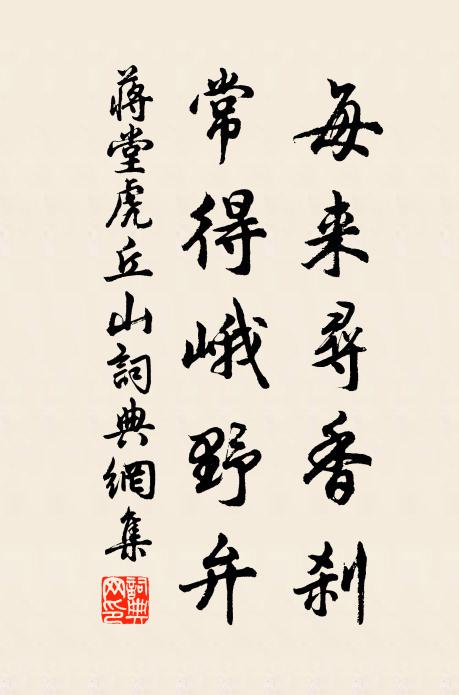 每来尋香刹
常得峨野弁
蔣堂虎丘山詞典網集
詞典網印